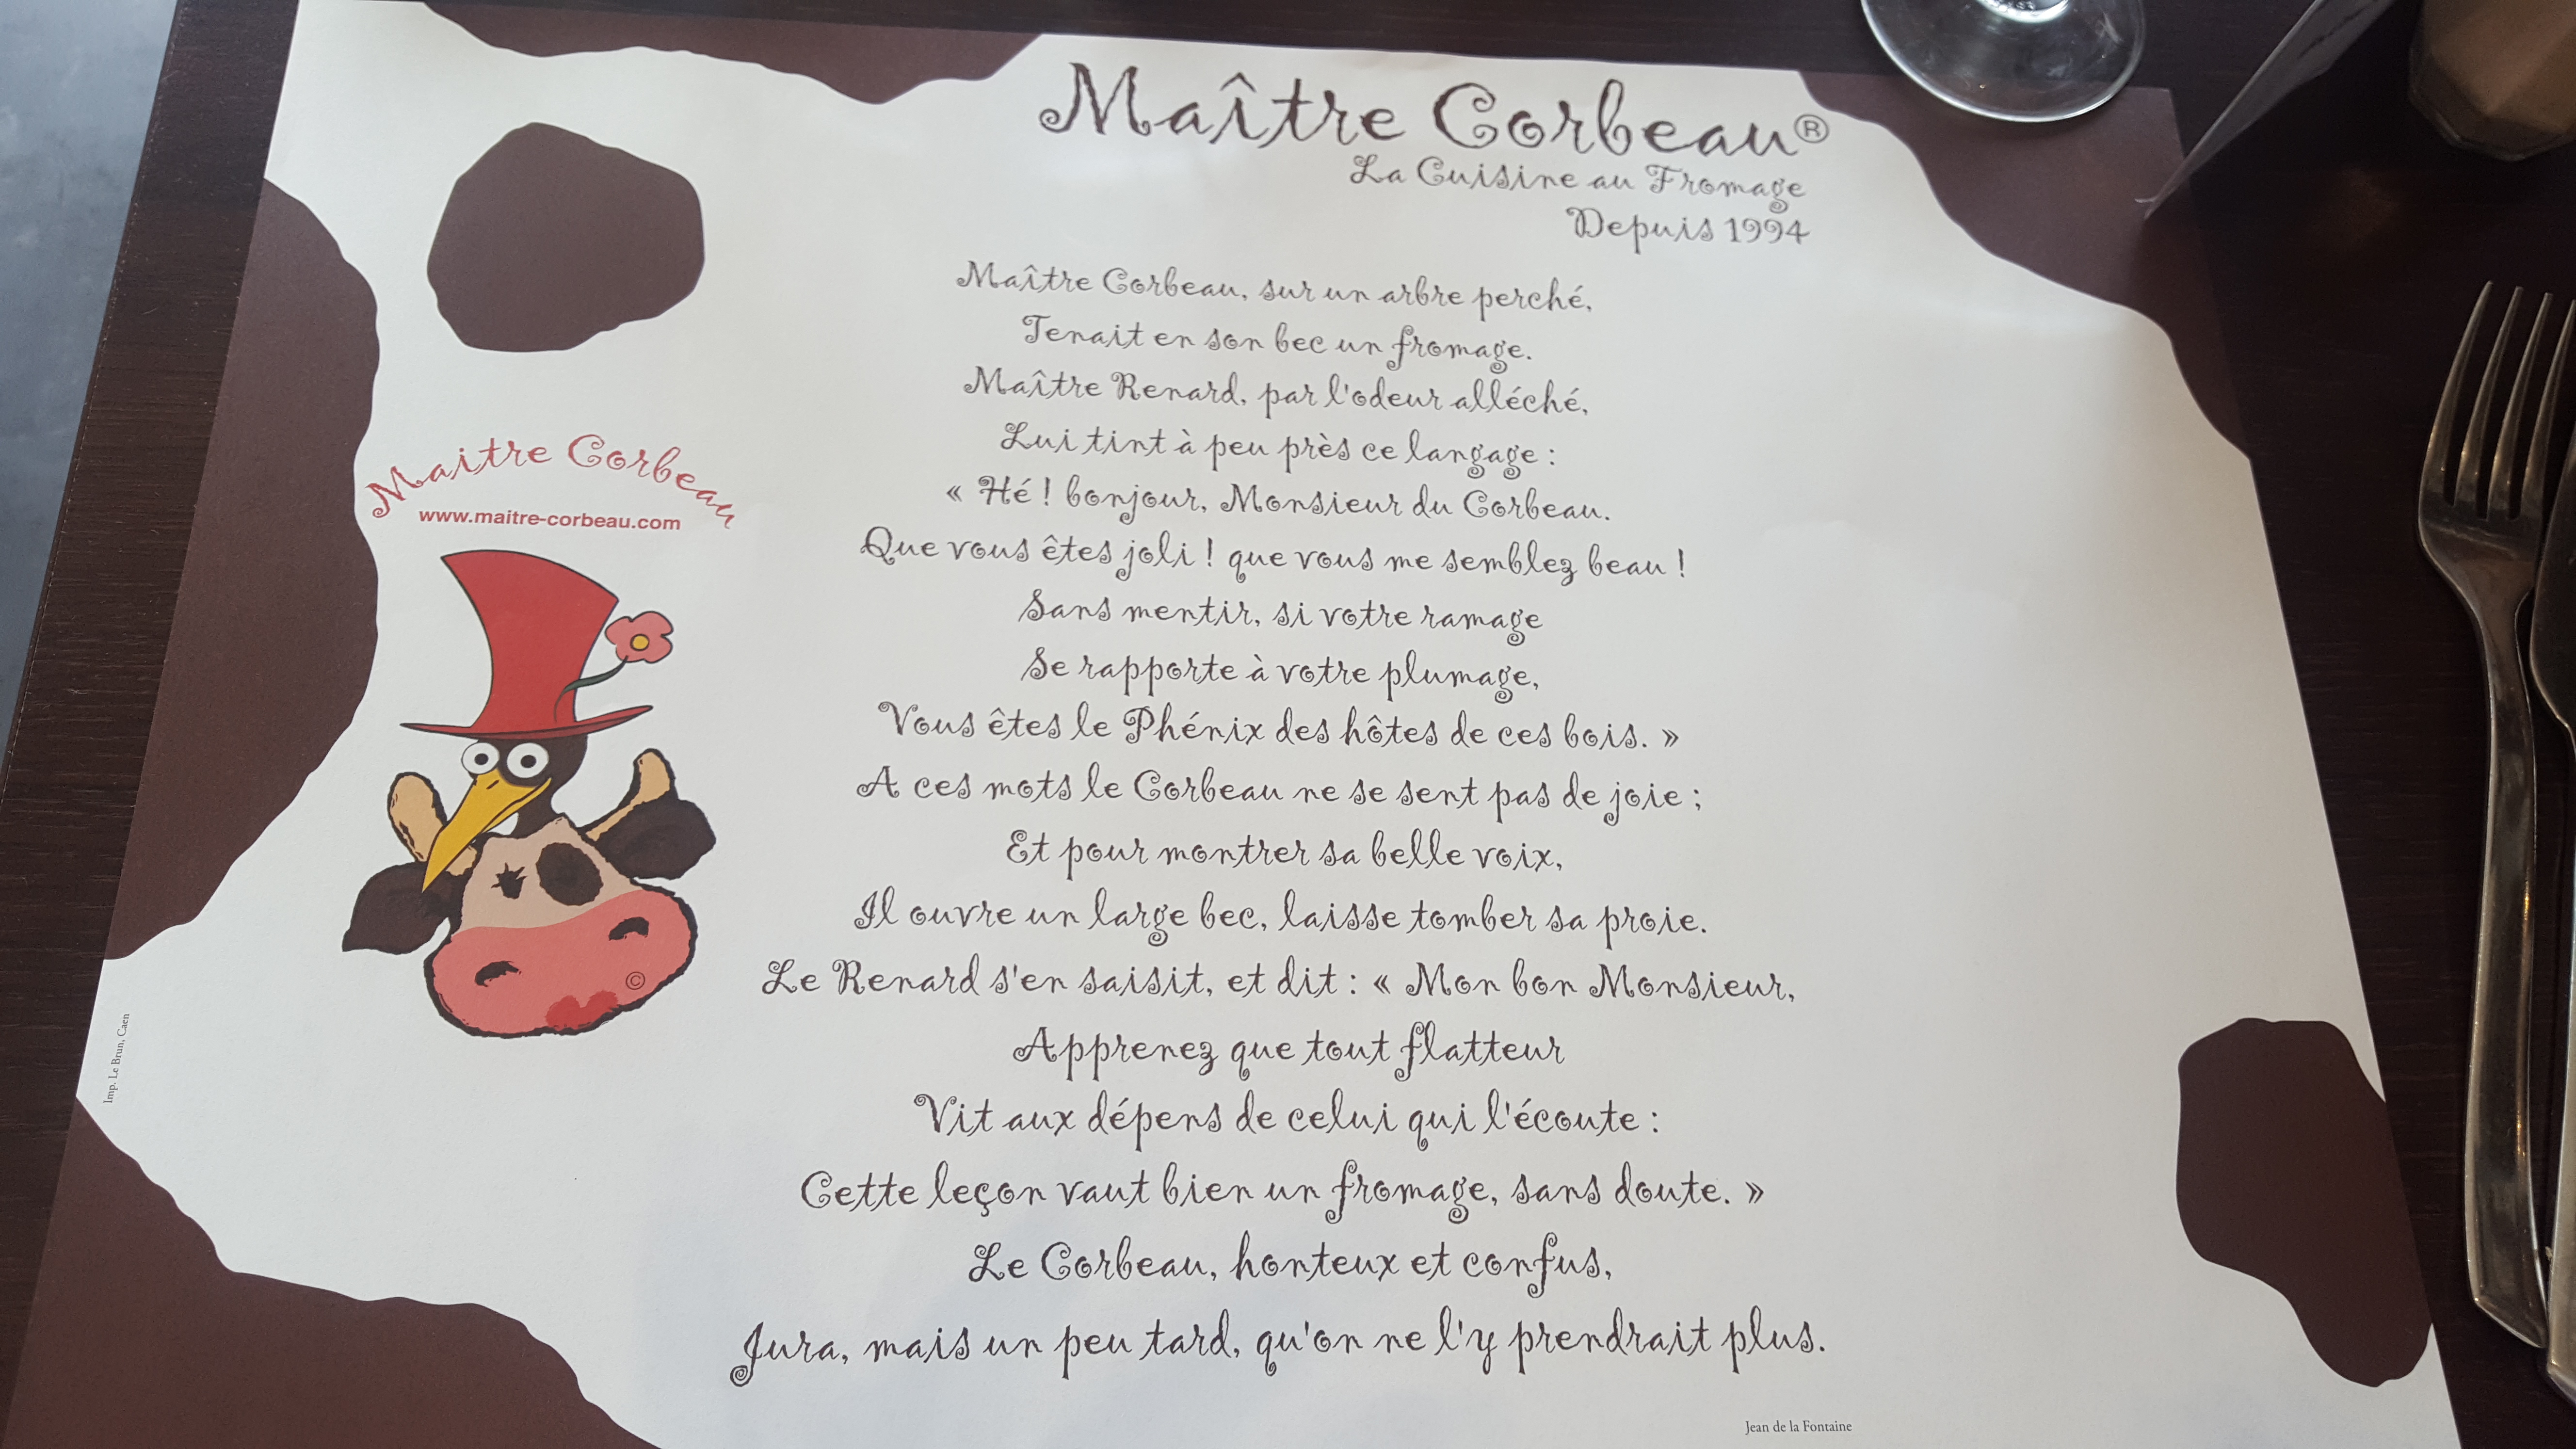 Maître Corbeau®
La Cuisine au Fromage
Depuis 1994
Maître Corbeau, sur un arbre perché,
Tenait en son bec un fromage.
Maître Renard, par l'odeur alléché,
Lui tint à peu près ce langage :
« Hé ! bonjour, Monsieur du Corbeau.
Que vous êtes joli ! que vous me semblez beau !
Sans mentir, si votre ramage
Se rapporte à votre plumage,
Vous êtes le Phénix des hôtes de ces bois. »
A ces mots le Corbeau ne se sent pas de joie ;
Et pour montrer sa belle voix,
Il ouvre un large bec, laisse tomber sa proie.
Le Renard s'en saisit, et dit : « Mon bon Monsieur,
Apprenez que tout flatteur
Vit aux dépens de celui qui l'écoute :
Cette leçon vaut bien un fromage, sans doute. »
Le Corbeau, honteux et confus,
Jura, mais un peu tard, qu'on ne l'y prendrait plus.
Jean de la Fontaine
Maitre Corbeau
www.maitre-corbeau.com
©
Imp. Le Brun, Caen